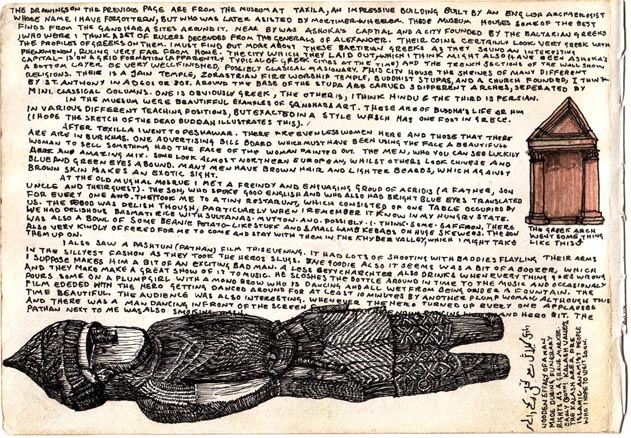 THE DRAWINGS ON THE PREVIOUS PAGE ARE FROM THE MUSEUM AT TAXILA, AN IMPRESSIVE BUILDING BUILT BY AN ENGLISH ARCHAEOLOGIST
WHOSE NAME I HAVE FORGOTTEN, BUT WHO WAS LATER ASISTED BY MORTIMER-WHEELER. THESE MUSEUM HOUSES SOME OF THE BEST
FINDS FROM THE GANDHARA SITES AROUND IT. NEAR BY WAS ASHOKA'S CAPITAL AND A CITY FOUNDED BY THE BACTARIAN GREEKS
(WHO WERE I THINK A SET OF RULERS DECENDED FROM THE GENERALS OF ALEXANDER. THEIR COINS CERTAINLY LOOK VERY GREEK WITH
THE PROFILES OF GREEKS ON THEM. I MUST FIND OUT MORE ABOUT THESE BACTRIAN GREEKS AS THEY SOUND AN INTERESTING
PHENOMENON, RULING VERY FAR FROM HOME. THE CITY WHICH THEY LAID OUT, WHICH I THINK MIGHT ALSO HAVE BEEN ASHOKA'S
CAPITAL IS ON A GRID FORMATION APPARENTLY TYPICAL OF GREEK CITIES AT THE TIME, AND THE TRENCH SECTIONS OF THE WALL SHOW
A BOTTOM LAYER OF VERY WELL FINISHED, POSSIBLY CLASSICAL MASONARY. THIS CITY HOUSE THE SHRINES OF MANY DIFFERENT
RELIGIONS. THEIR IS A JAIN TEMPLE, ZORASTRIAN FIRE WORSHIP TEMPLE, BUDDHIST STUPAS, AND A CHURCH FOUNDED, I THINK
BY ST ANTHONY IN AD 60 OR 20. AROUND THE BASE OF THE STUPA ARE CARVED 3 DIFFERENT ARCHES, SEPERATED BY
MINI CLASSICAL COLUMNS. ONE IS OBVIOUSLY GREEK, THE OTHER IS, I THINK HINDU & THE THIRD IS PERSIAN.
IN THE MUSEUM WERE BEAUTIFULL EXAMPLES OF GANDHARA ART. THESE ARE OF BUDDHA'S LIFE OR HIM
IN VARIOUS DIFFERENT TEACHING POSITIONS, BUT EXACTED IN A STYLE WHICH HAS ONE FOOT IN GREECE.
(I HOPE THE SKETCH OF THE DEAD BUDDAH ILLUSTRATES THIS).
AFTER TEXILLA I WENT TO PESHAWAR. THERE ARE EVEN LESS WOMEN HERE AND THOSE THAT THERE
ARE ARE IN BURKHAS. ONE ADVERTISING BILL BOARD WHICH MUST HAVE BEEN USING THE FACE A BEAUTIFULL
WOMAN TO SELL SOMETHING HAD THE FACE OF THE WOMAN PAINTED OUT. THE MEN, WHO YOU CAN SEE LUCKILY
ARE AN AMAZING MIX. SOME LOOK ALMOST NORTHERN EUROPEAN, WHILST OTHERS LOOK CHINESE AND
BLUE AND GREEN EYES ABOUND. MANY MEN HAVE BROWN HAIR AND LIGHTER BEARDS, WHICH AGAINST
BROWN SKIN MAKES AN EXOTIC SIGHT.
AT THE OLD MUGHAL MOSQUE I MET A FRIENDY AND ENQUIRING GROUP OF ACRIDUS (A FATHER, SON
UNCLE AND THEIR GUEST). THE SON, WHO SPOKE GOOD ENGLISH AND WHO HAD BRIGHT BLUE EYES TRANSLATED
FOR EVERY ONE AND. THEY TOOK ME TO A TINY RESTARUNT, WHICH CONSISTED OF ONE TABLE OCCUPIED BY
US. THE FOOD WAS DELISH THOUGH, PARTICULARLY WHEN I REMEMBER IT KNOW IN MY HUNGRY STATE.
WE HAD DELISHOUS BASMATI RICE WITH SULTANAS. MUTTON. AND. POSSIBLY. I. THINK. SOME. SAFFRON. THERE
WAS ALSO A BOWL OF SOME BEANIE POTATO-LIKE STUFF AND SMALL LAMB KEBABS ON HUGE SKEWERS. THE SON
ALSO VERY KINDLY OFFERED FOR ME TO COME AND STAY WITH THEM IN THE KHYBER VALLEY, WHICH I MIGHT TAKE
THEM UP ON.
I ALSO SAW A PASHTUN (PATHAN) FILM THIS EVENING. IT HAD LOTS OF SHOOTING WITH BADDIES FLAYLING THEIR ARMS
IN THE SILLIEST FASHON AS THEY TOOK THE HERO'S SLUGS. ONE GOODIE ALSO IT SEEMS WAS A BIT OF A BOOZER, WHICH
I SUPPOSE MAKES HIM A BIT OF AN EXCITING BAD MAN. A LESS
AND THEY MAKE MAKE A GREAT SHOW OF IT TO MUSIC. HE SLOSHES THE BOTTLE AROUND IN TIME TO THE MUSIC AND OCCASIONALLY
POURS SOME ON A PLUMP GIRL WITH A MONO BROW WHO IS DANCING AND ALL WET FROM BEING UNDER A FOUNTAIN. THE
FILM ENDED WITH THE HERO GETTING DANCED AROUND FOR AT LEAST 10 MINUTES BY ANOTHER PLUMP WOMAN, ALTHOUGH THIS
TIME BEAUTIFUL. THE AUDIENCE WAS ALSO INTERESTING. WHENEVER THE HERO TURNED UP EVERY ONE APPLAUDED
AND THERE WAS A MAN DANCING IN FRONT OF THE SCREEN AND HERO BIT. THE
PATHAN NEXT TO ME WAS ALSO SMOKING
THE GREEK ARCH
WENT SOMETHING
LIKE THIS
WOODEN EFFIGY OF A MAN
MADE DURING FUNERARY
RIGHTS AS A GRAVE MARKER.
EARLY 20TH C. KALASH VALLEY
THE KALASH ARE PRE
ISLAMIC ANAMIST PEOPLE
WHO I HOPE TO VISIT SOON.